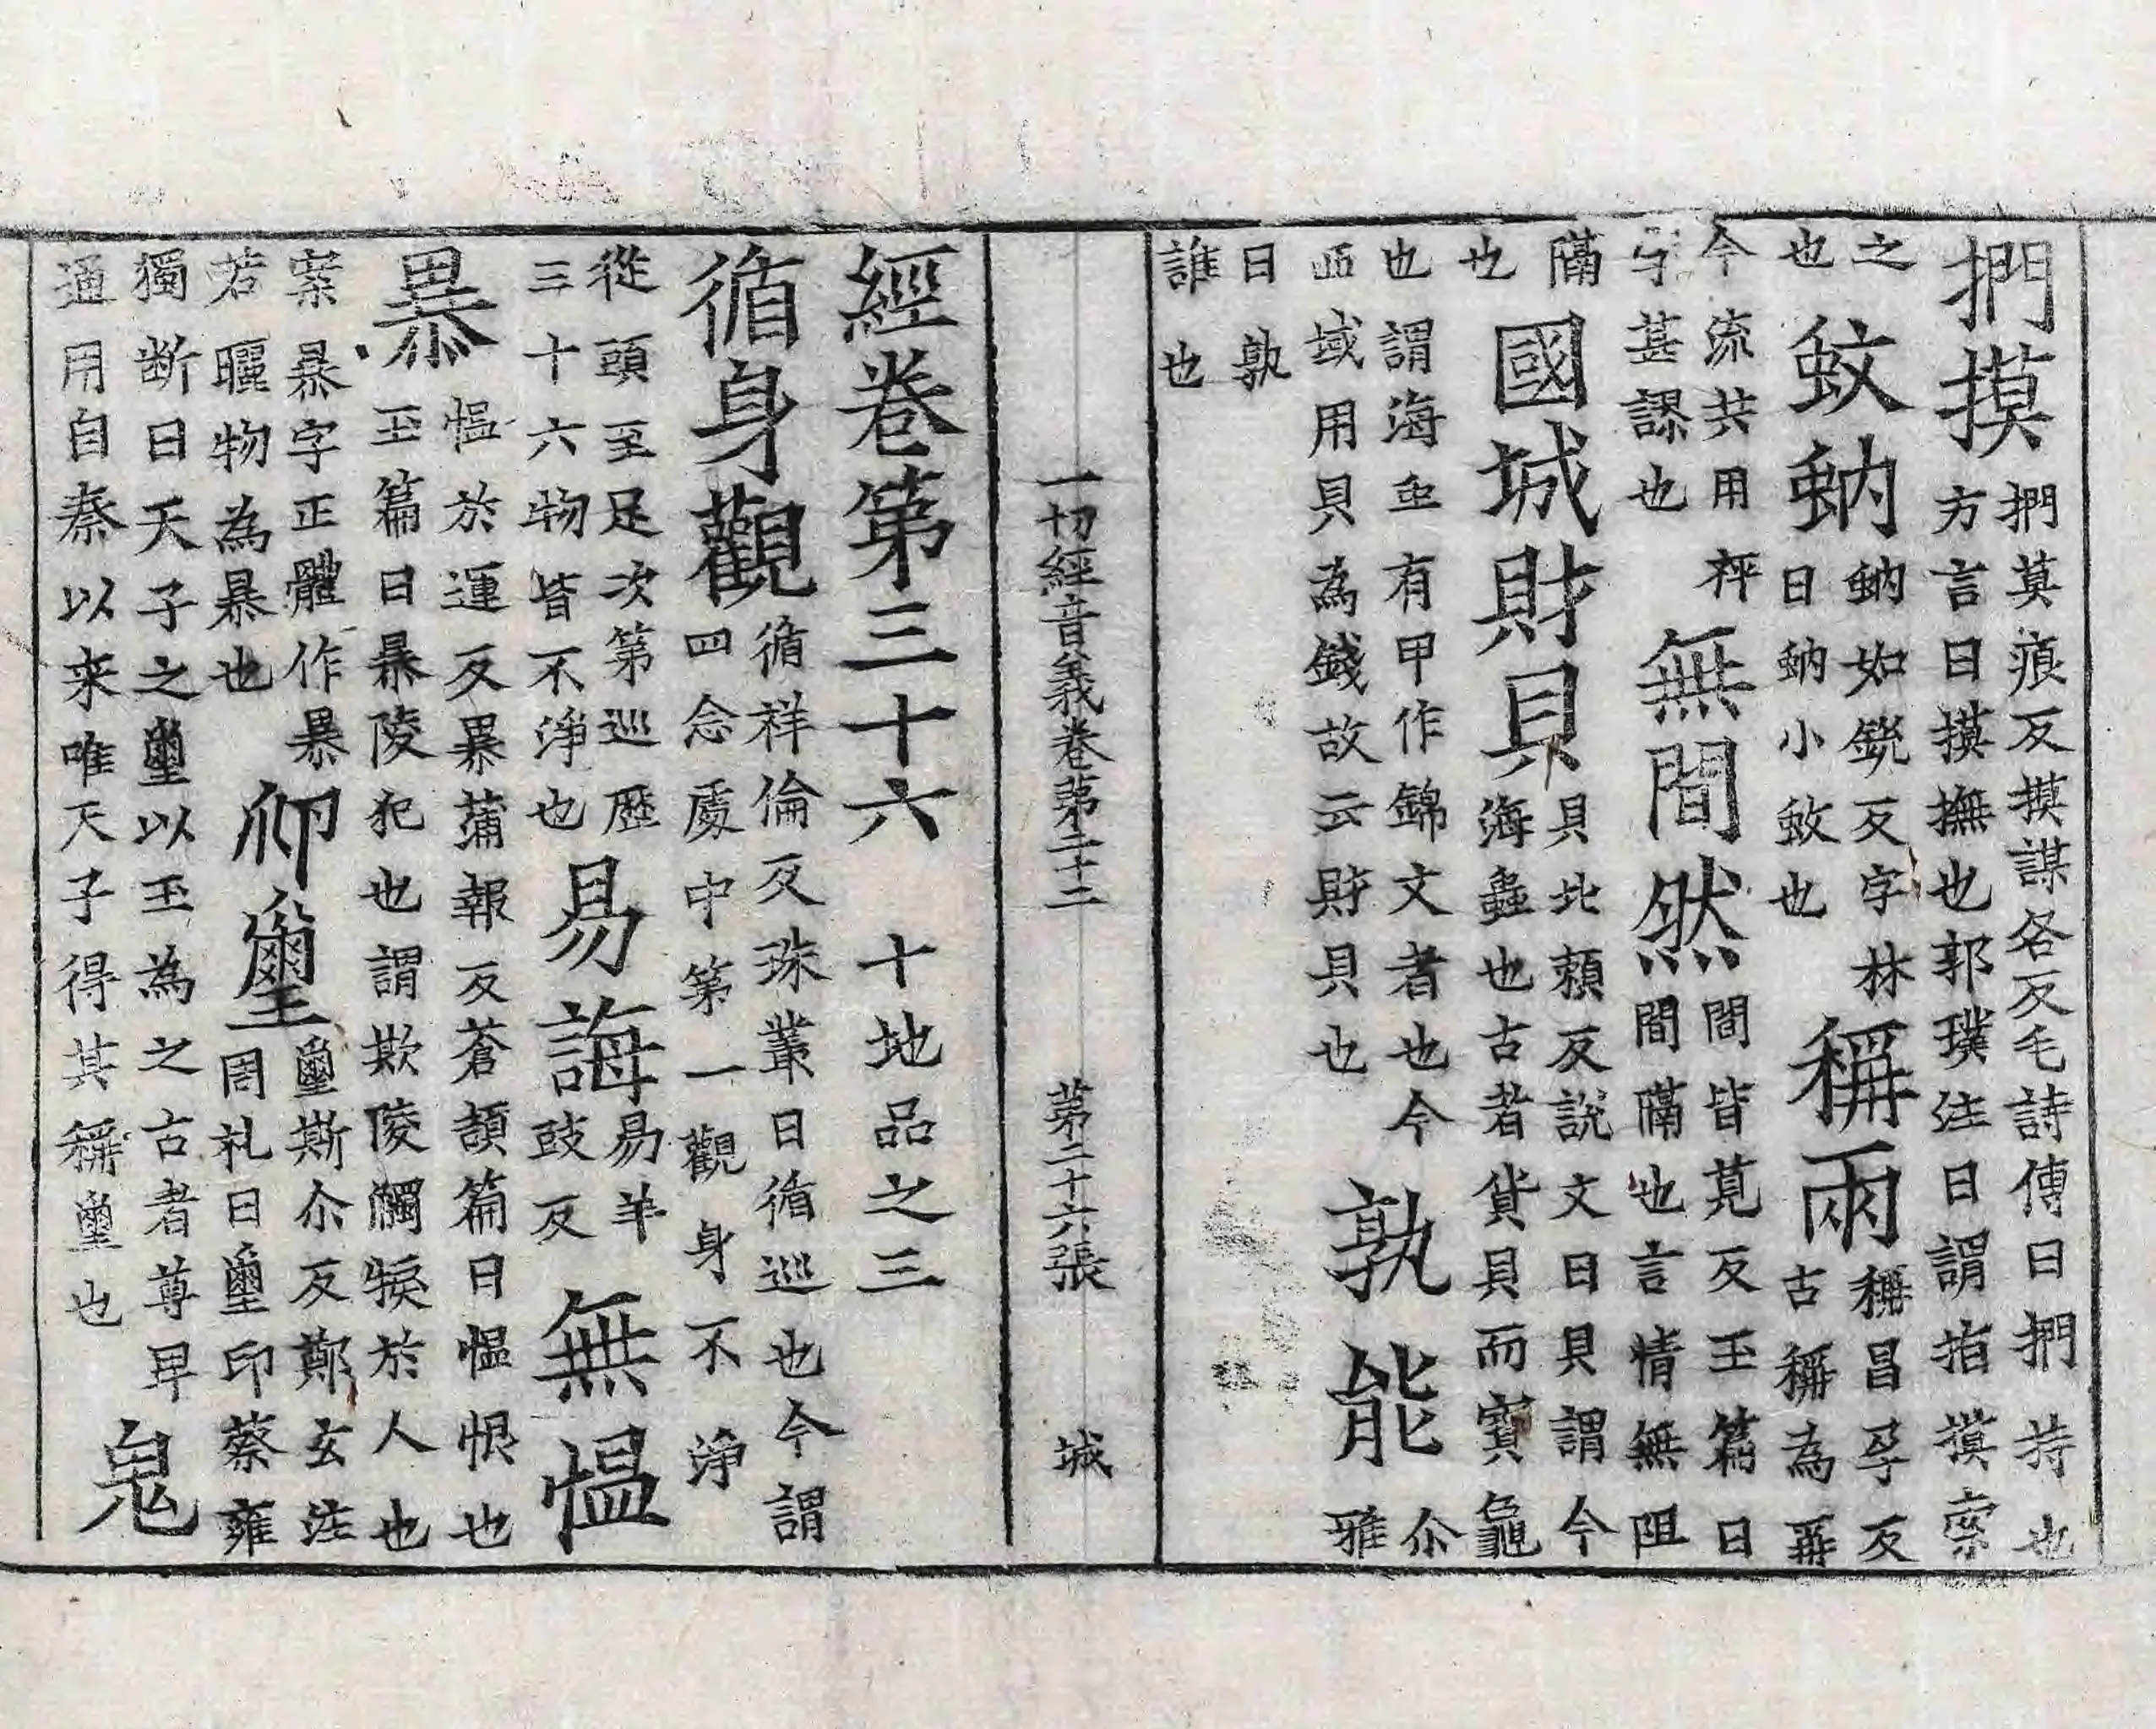 捫摸捫莫痕反摸謀各反毛詩傳曰捫持也方言曰摸撫也郭璞注曰謂指摸索
之也蚊蚋蚋如銳反字林曰蚋小蚊也稱兩稱昌孕反古稱為再
今流共用秤字甚謬也無間然間皆莧反玉篇曰間隔也言情無阻
隔也國城財貝貝北頼反說文曰貝謂今海蟲也古者貨貝而寶龜
也謂海虫有甲作錦文者也今西域用貝為錢故云財貝也孰能尒雅
曰孰誰也
一切經音義卷第二十二 第二十六張 城
經卷第三十六 十地品之三
循身觀循祥倫反珠叢曰循巡也今謂四念處中第一觀身不淨
從頭至足次第巡歷三十六物皆不淨也易誨易羊豉反無慍
暴慍於運反暴蒲報反蒼頡篇曰慍恨也玉篇曰暴陵犯也謂欺陵觸猴於人也
案暴字正體作暴若曬物為暴也仰璽璽斯尒反鄭玄注周礼曰璽印蔡雍
獨断曰天子之璽以玉為之古者尊卑通用自秦以来唯天子得其稱璽也皃